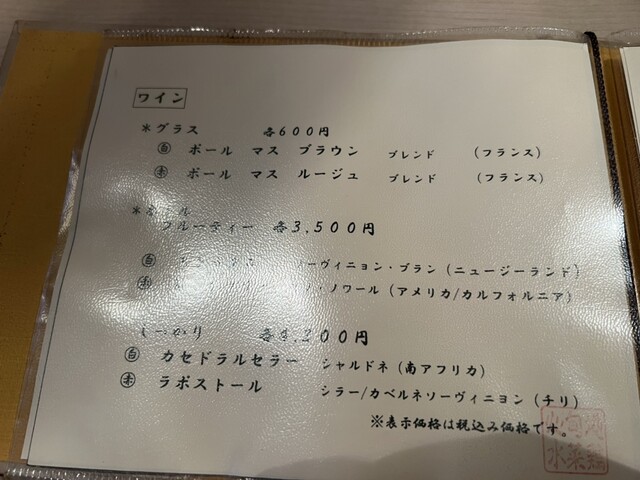 ワイン
＊グラス 各600円
㊐ ポール マス ブラウン ブレンド （フランス）
㊍ ポール マス ルージュ ブレンド （フランス）
フルーティー 各3,500円
ソーヴィニョン・ブラン（ニュージーランド）
ノワール（アメリカ/カルフォルニア）
しっかり
白 カセドラルセラー シャルドネ（南アフリカ）
赤 ラポストール シラー/カベルネソーヴィニヨン（チリ）
※表示価格は税込み価格です。